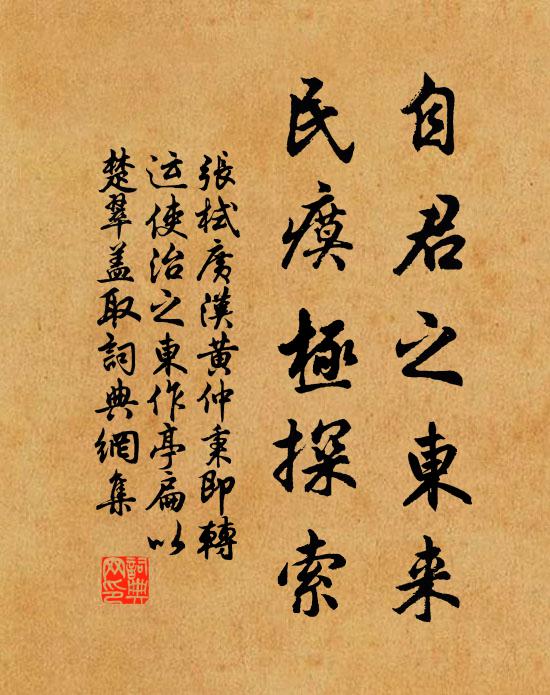 自君之東来
民瘼極探索
張栻廣漢黃仲秉即轉
运使治之東作亭扁以
楚翠盖取詞典網集
詞典网印